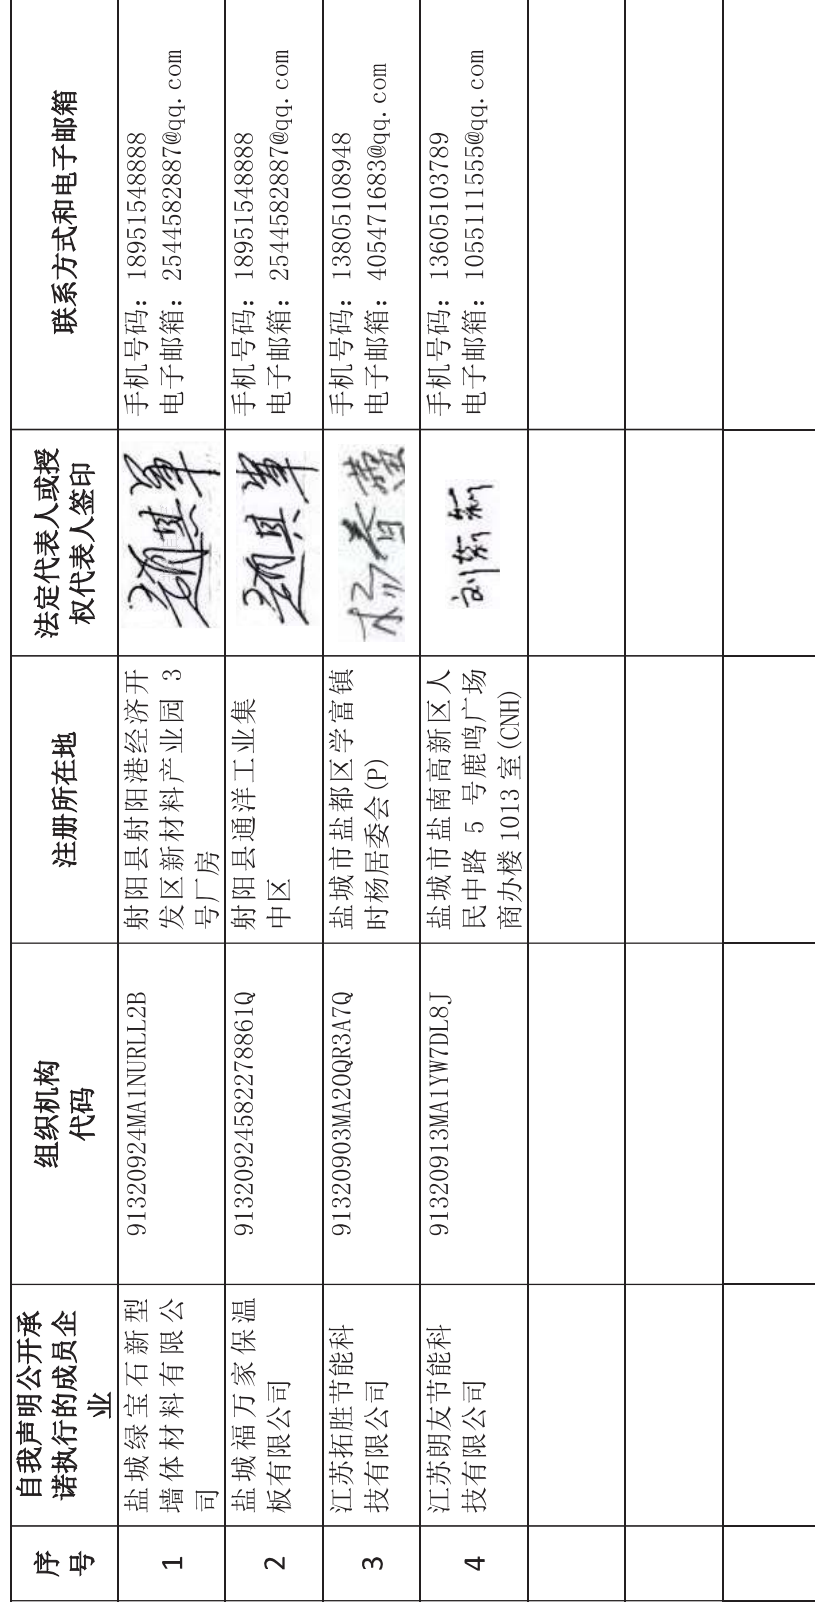 序
号
自我声明公开承
诺执行的成员企
业
组织机构
代码
注册所在地
法定代表人或授
权代表人签印
联系方式和电子邮箱
1
盐城绿宝石新型
墙体材料有限公
司
91320924MA1NURLL2B
射阳县射阳港经济开
发区新材料产业园 3
号厂房
手机号码：18951548888
电子邮箱：2544582887@qq.com
2
盐城福万家保温
板有限公司
91320924582278861Q
射阳县通洋工业集
中区
手机号码：18951548888
电子邮箱：2544582887@qq.com
3
江苏拓胜节能科
技有限公司
91320903MA20QR3A7Q
盐城市盐都区学富镇
时杨居委会(P)
手机号码：13805108948
电子邮箱：405471683@qq.com
4
江苏朗友节能科
技有限公司
91320913MA1YW7DL8J
盐城市盐南高新区人
民中路 5 号鹿鸣广场
商办楼 1013 室(CNH)
手机号码：13605103789
电子邮箱：1055111555@qq.com